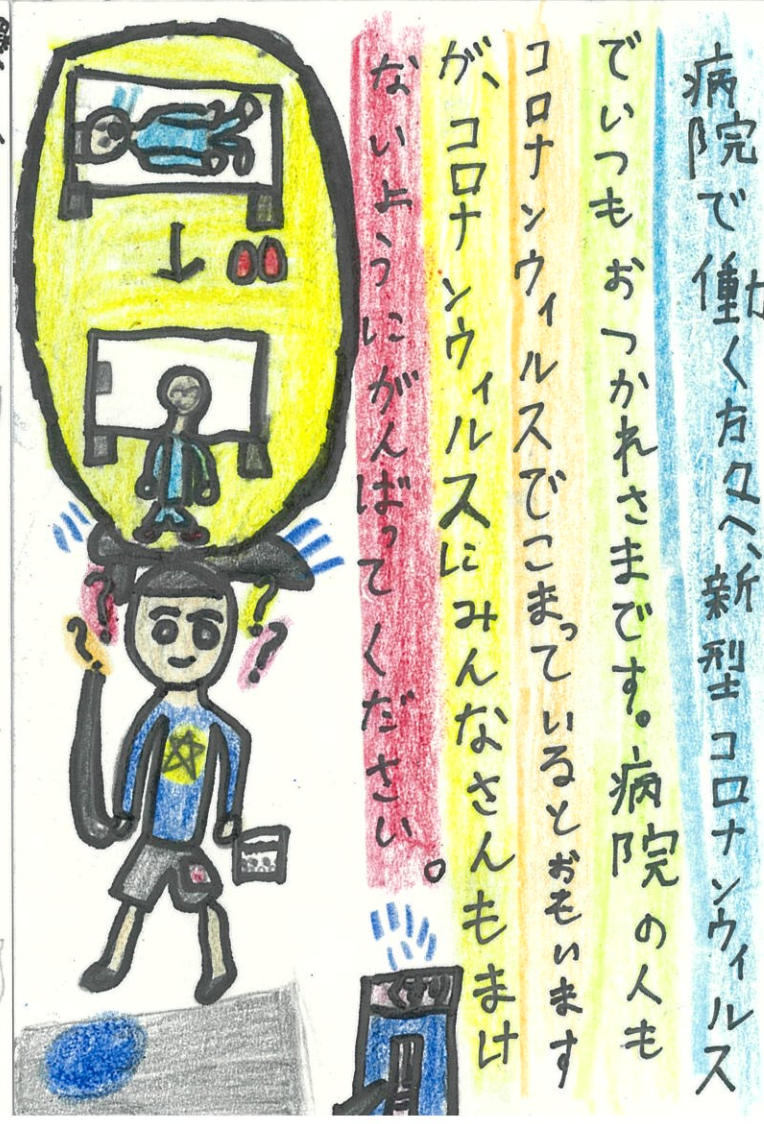 病院で働く方々へ、新型コロナンウィルス
でいつもおつかれさまです。病院の人も
コロナンウィルスでこまっているとおもいます
が、コロナンウィルスにみんなさんもまけ
ないようにがんばってください。
?
?
?
?
くすり